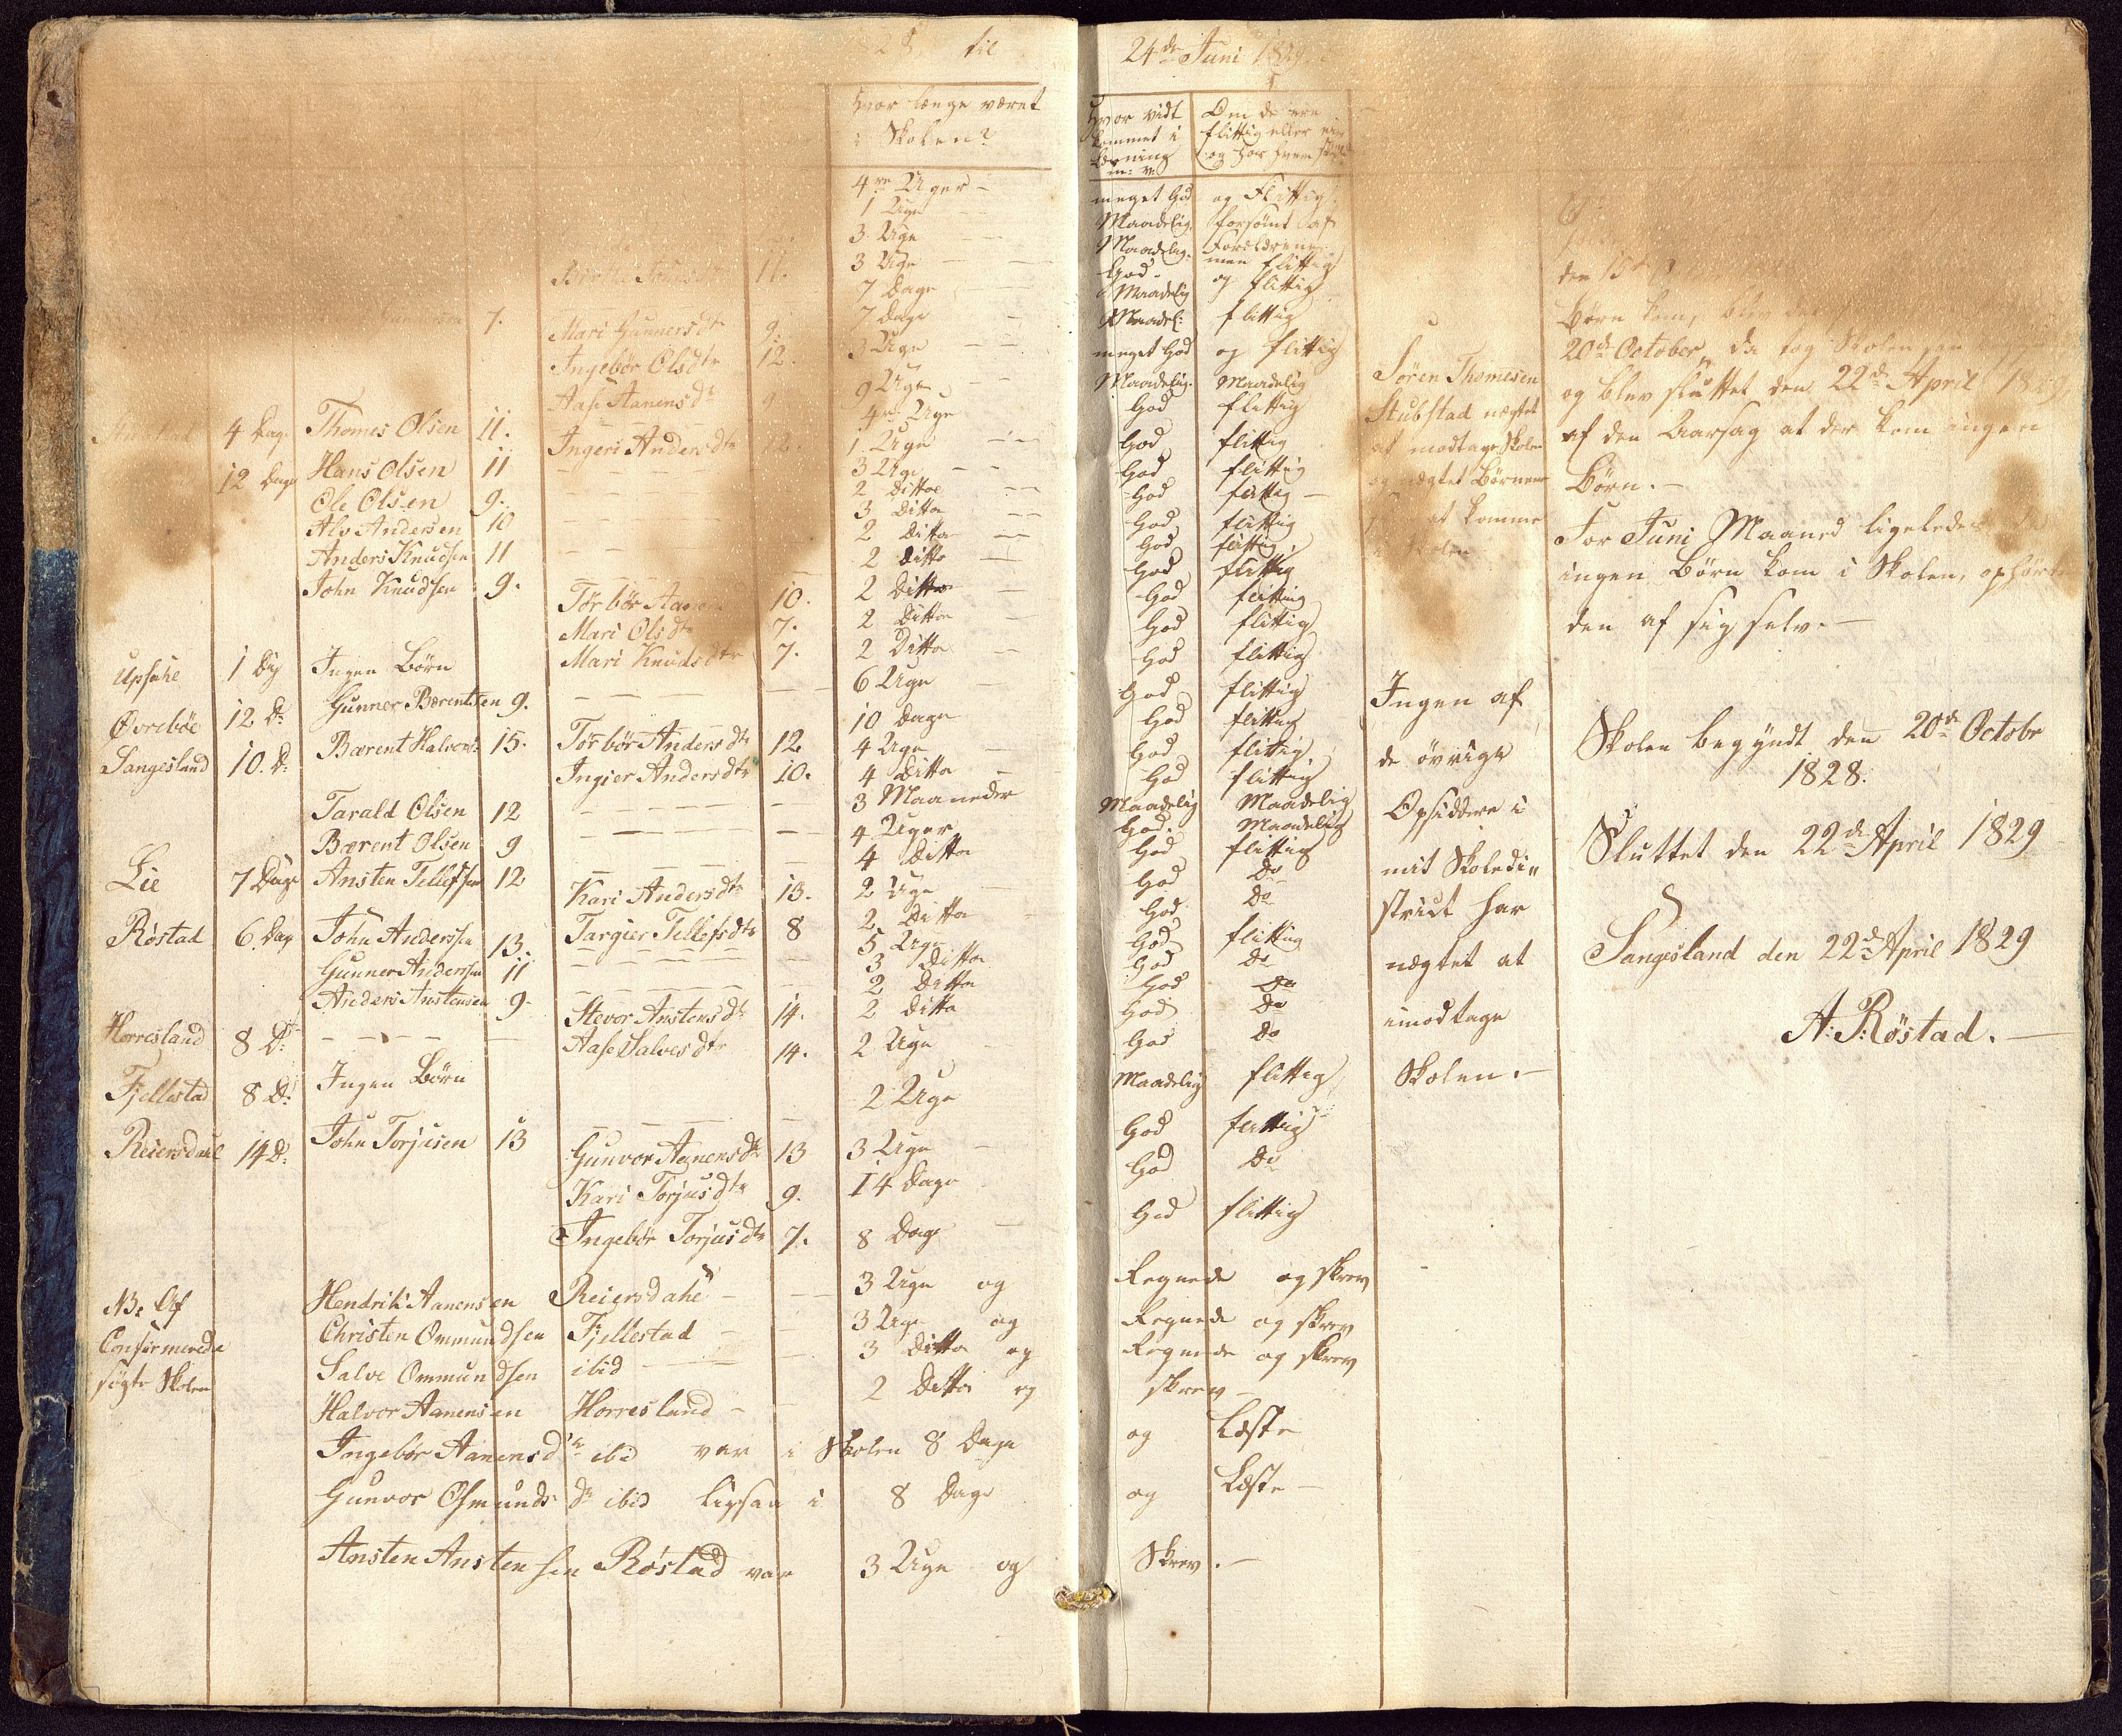 1828 til
Hvor længe været
i Skolen?
4re Uger -
1 Uge
3 Uge
3 Uge
11.
7 Dage
7.
Mari Gunnersdtr 9. 7 Dage
Ingebör Olsdtr 12. 3 Uge
Aase Aanensdtr 9 Uge
4 Dage Thomes Olsen 11. Ingeri Andersdtr 12. 4re Uge
12 Dage Hans Olsen 11 1 Uge
Ole Olsen 9. 3 Uge
Alv Andersen 10 2 Dittoe
Anders Knudsen 11 3 Ditto
John Knudsen 9. 2 Ditto
2 Ditto
Törbör 10. 2 Ditto
Mari Olsdtr 7. 2 Ditto
Upsahl 1 Dag Ingen Börn Mari Knudsdtr 7. 2 Ditto
Øvreböe 12 D: Gunner Bærentsen 9. 6 Uge
Sangesland 10. D: Bærent Halvors: 15. 10 Dage
Törbör Andersdtr 12 4 Uge
Ingier Andersdtr 10. 4 Ditto
Tarald Olsen 12 3 Maaneder
Bærent Olsen 9 4 Uger
Lie 7 Dage Ansten Tellefsen 12 4 Ditto
Kari Andersdtr 13. 2 Uge
Röstad 6. Dage John Andersen 13. Targier Tellefsdtr 8 2 Ditto
Gunner Andersen 11 5 Uge
Anders Anstensen 9. 3 Ditto
2 Ditto
Stevor Anstensdtr 14. 2 Ditto
Horresland 8 D: Aase Salvesdtr 14. 2 Uge
Fjellestad 8 D: Ingen Börn
2 Uge
Reiersdahl 14 D: John Torjusen 13
Gunvor Aanensdtr 13 3 Uge
Kari Torjusdtr 9. 14 Dage
Ingebör Torjusdtr 7. 8 Dage
NB: Af Hendrik Aanensen Reiersdahl - 3 Uge og
Confirmerede Christen Ommundsen Fjellestad - 3 Uge og
søgte Skolen Salve Ommundsen ibid 3 Ditto og
Halvor Aanensen Horresland - 2 Ditto og
Ingebör Aanensdtr ibid var i Skolen 8 Dage
Gunvor Osmundsdtr ibid ligesaa i 8 Dage
Ansten Anstensen Röstad var 3 Uge og
24de Juni 1829
Hvor vidt
kommet i
Lærning
m: v:
Om de ere
flittig eller ei
og hos hvem
meget God og Flittig
Maadelig. forsömt af
Maadelig. Forældrene
God - men flittig
Maadelig og flittig
Maadel: flittig
meget God og flittig
Maadelig. Maadelig
God flittig
God flittig
God flittig
God flittig -
God flittig
God flittig
God flittig
God flittig
God flittig
God flittig
God flittig
God flittig
God flittig
God flittig
Maadelig Maadelig
God. Maadelig
God flittig
God Do
God Do
God flittig
God Do
God Do
God Do
God Do
Maadelig flittig
God flittig
God Do
God flittig
Regnede og skrev
Regnede og skrev
Regnede og skrev
skrev -
og Læste
og Læste -
Skrev. -
Sören Thomesen
Stubstad nægtet
at modtage Skolen
og nægtet Börnene
at komme
Ingen af
de övrige
Opsiddere i
mit Skoledi"
strict har
nægtet at
imodtage
Skolen. -
den 15de
Börn kom, blev
20de October, da tog Skolen
og blev sluttet den 22de April 1829
af den Aarsag at der kom ingen
Börn. -
For Juni Maaned ligeledes
ingen Börn kom i Skolen, ophörte
den af sig selv. -
Skolen begyndt den 20de Octobr
1828.
Sluttet den 22de April 1829
Sangesland den 22de April 1829
A: Röstad. -